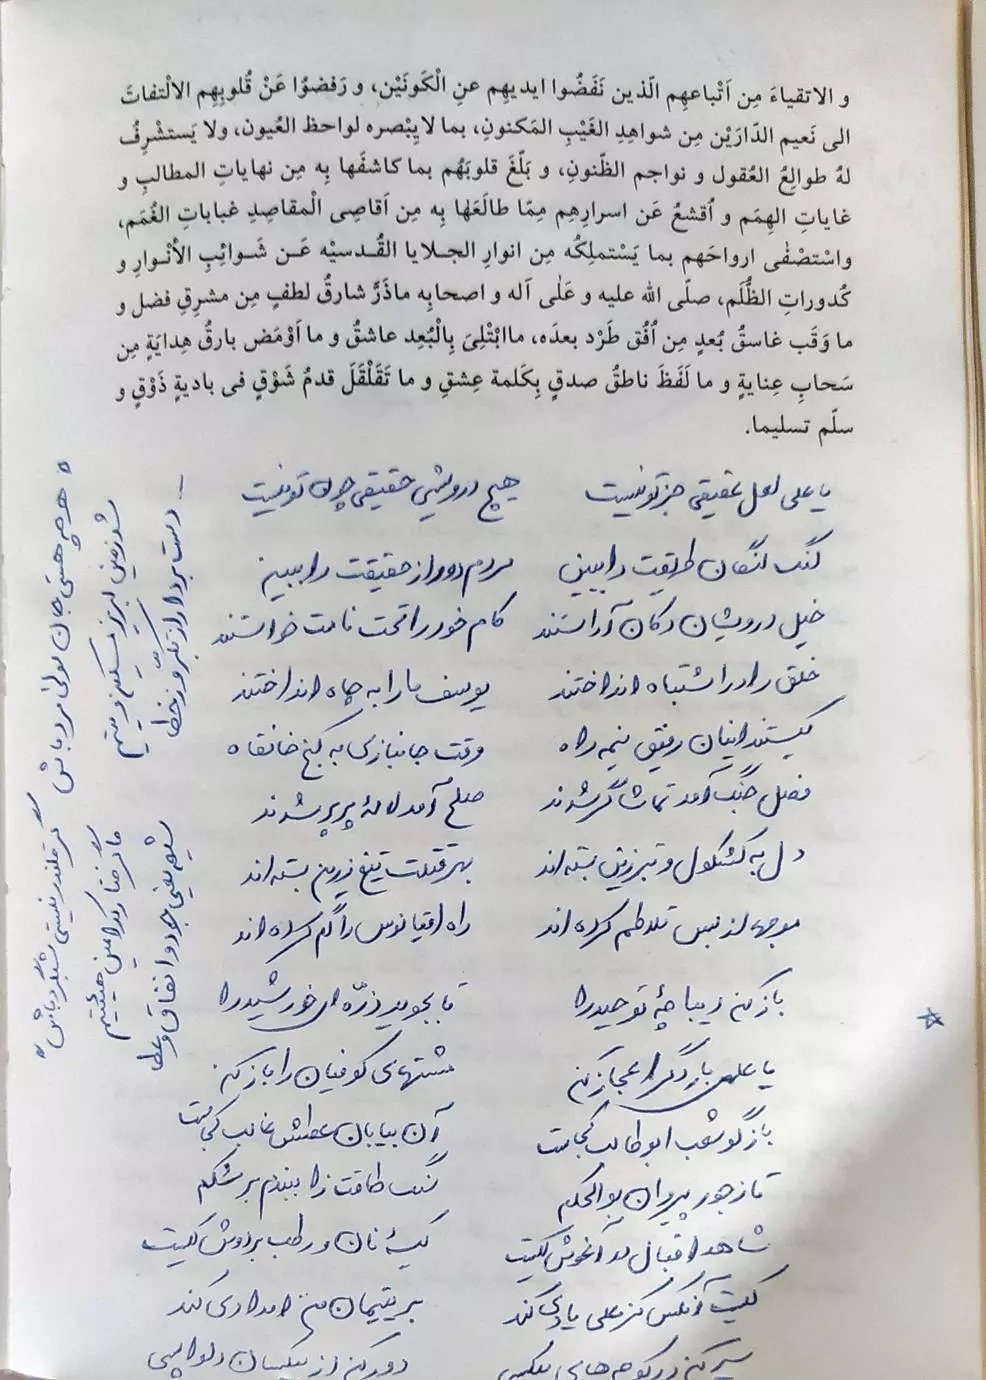 و الاتقیاءَ مِن اَتْباعهِم الّذین نَفَضُوا ایدیهِم عنِ الْکَونَیْن، و رَفضوُا عَنْ قُلوبِهِم الالْتفاتَ
الی نَعیم الدّارَیْن مِن شواهِدِ الغَیْبِ المَکنونِ، بما لایِبْصره لواحظ العُیون، ولا یَستشْرِفُ
لهُ طوالِعُ العُقول و نواجم الظّنونِ، و بَلّغَ قلوبَهُم بما کاشفَها بِه مِن نهایاتِ المطالبِ و
غایاتِ الهِمَم و اُقشعُ عَن اسرارِهِم مِمّا طالَعَها بِه مِن اَقاصِی الْمقاصِدِ غیاباتِ الغُمَم،
واسْتصْفٰی ارواحَهم بما یَسْتملِکُه مِن انوارِ الجـلایا القُـدسیْه عَـن شَـوائِبِ الأنْـوارِ و
کُدوراتِ الظُّلَم، صلّی الله علیه و عَلٰی آله و اصحابِه ماذَرَّ شارقُ لطفٍ مِن مشرِقِ فضل و
ما وَقَب غاسقُ بُعدٍ مِن اُفُق طَرْد بعدَه، ماابْتُلِیَ بِالْبُعِد عاشقُ و ما اَوْمَض بارقُ هِدایَةٍ مِن
سَحابِ عِنایةٍ و ما لَفَظَ ناطقُ صدقٍ بِکَلمة عِشقٍ و ما تَقَلْقَلَ قدمُ شَوْقٍ فی بادیةٍ ذَوْقٍ و
سلّم تسلیما.
یا علی لعل عقیقی جز تو نیست هیچ درویشی حقیقی چون تو نیست
لنگ لنگان طریقت را ببین مردم دور از حقیقت را ببین
خیل درویشان دکان آراستند کام خود را تحت نامت خواستند
خلق را در اشتباه انداختند یوسف ما را به چاه انداختند
کیستند اینان رفیق نیمه راه وقت جانبازی به کنج خانقاه
فصل جنگ آمد تماشاگر شدند صلح آمد لاله پرپر شدند
دل به کشکول و تبرزین بسته اند بهر قتلت تیغ زرین بسته اند
موجها از بس تلاطم کرده اند راه اقیانوس را گم کرده اند
باز کن دیباچهٔ توحید را تا بجوید ذرّه ای خورشید را
یا علی بار دگر اعجاز کن مشتهای کوفیان را باز کن
باز گو شعب ابوطالب کجاست آن بیابان عطش غالب کجاست
تا ز جور پیروان بوالحکم سنگ طاقت را ببندم بر شکم
شاهد اقبال در آغوش کیست کیسه نان و رطب بر دوش کیست
کیست آنکس کز علی یادی کند بر یتیمان من امدادی کند
سر کن در کوچه های دور کن از بیکسان دلواپسی
« هرچه هستی جان مولی مرد باش
گر قلندر نیستی شبگرد باش »
شد زمین لبریز مسکین و یتیم
ما گرفتار کدامین هیئتیم
دست بردار از تکبر وز خطا
شیعه یعنی جود و انفاق و عطا